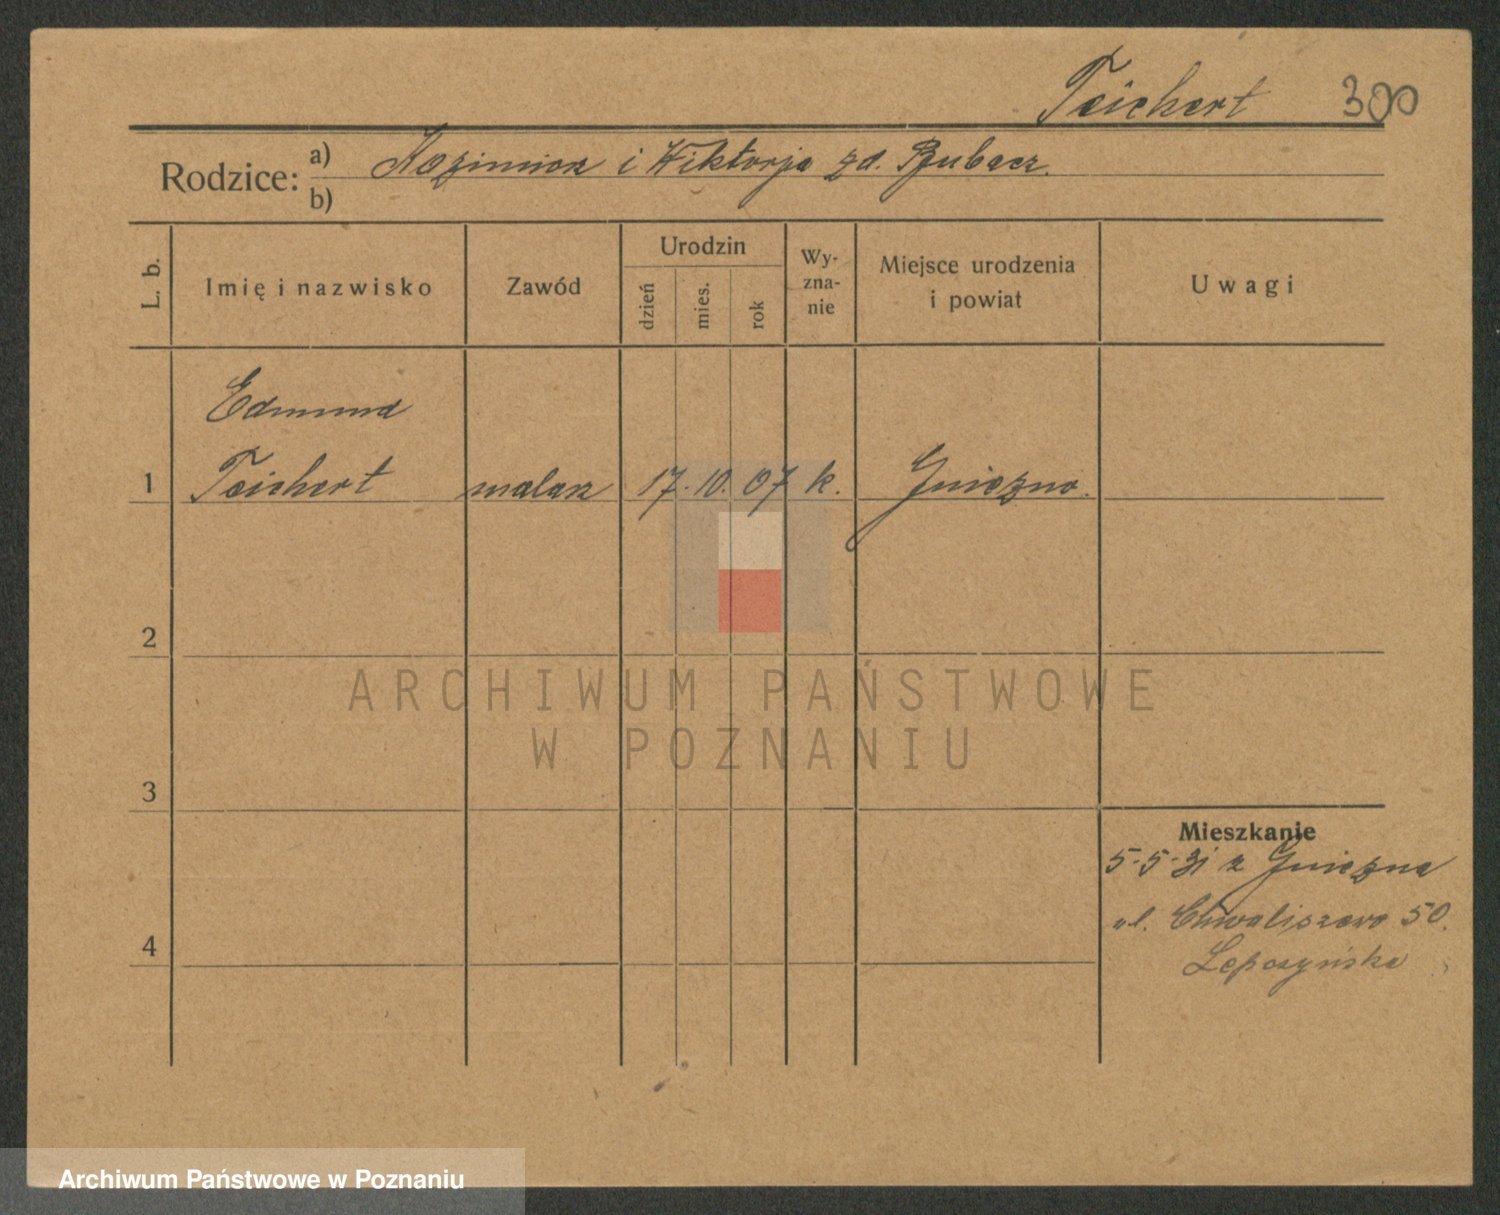 Teichert 300
Rodzice: a) Kazimierz i Wiktorja zd.
b)
L. b.
Imię i nazwisko
Zawód
Urodzin
dzień
mies.
rok
Wy-
zna-
nie
Miejsce urodzenia
i powiat
Uwagi
Edmund
1 Teichert malarz 17. 10. 07 k. Gniezno.
2
ARCHIWUM PAŃSTWOWE
W POZNANIU
3
Mieszkanie
5-5-31 z Gniezna
ul. Chwaliszewo 50.
4
Archiwum Państwowe w Poznaniu